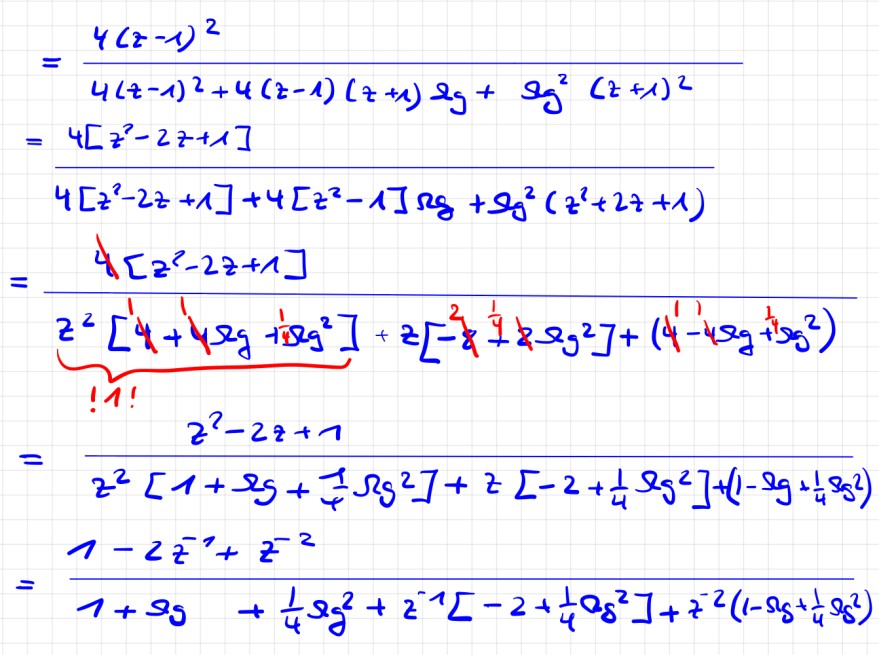 = 4(z-1)² / 4(z-1)² + 4(z-1)(z+1) Ωg + Ωg² (z+1)²
= 4[z²-2z+1] / 4[z²-2z+1] + 4[z²-1] Ωg + Ωg² (z²+2z+1)
= 4[z²-2z+1] / z² [4 + 4Ωg + Ωg²] + z[-8 + 2Ωg²] + (4 - 4Ωg + Ωg²)
1 1 1/4 2 1/4 1 1 1/4
!1!
= z²-2z+1 / z² [1 + Ωg + 1/4 Ωg²] + z [-2 + 1/4 Ωg²] + (1-Ωg+1/4 Ωg²)
= 1 - 2z⁻¹ + z⁻² / 1 + Ωg + 1/4 Ωg² + z⁻¹ [-2 + 1/4 Ωg²] + z⁻² (1-Ωg+1/4 Ωg²)